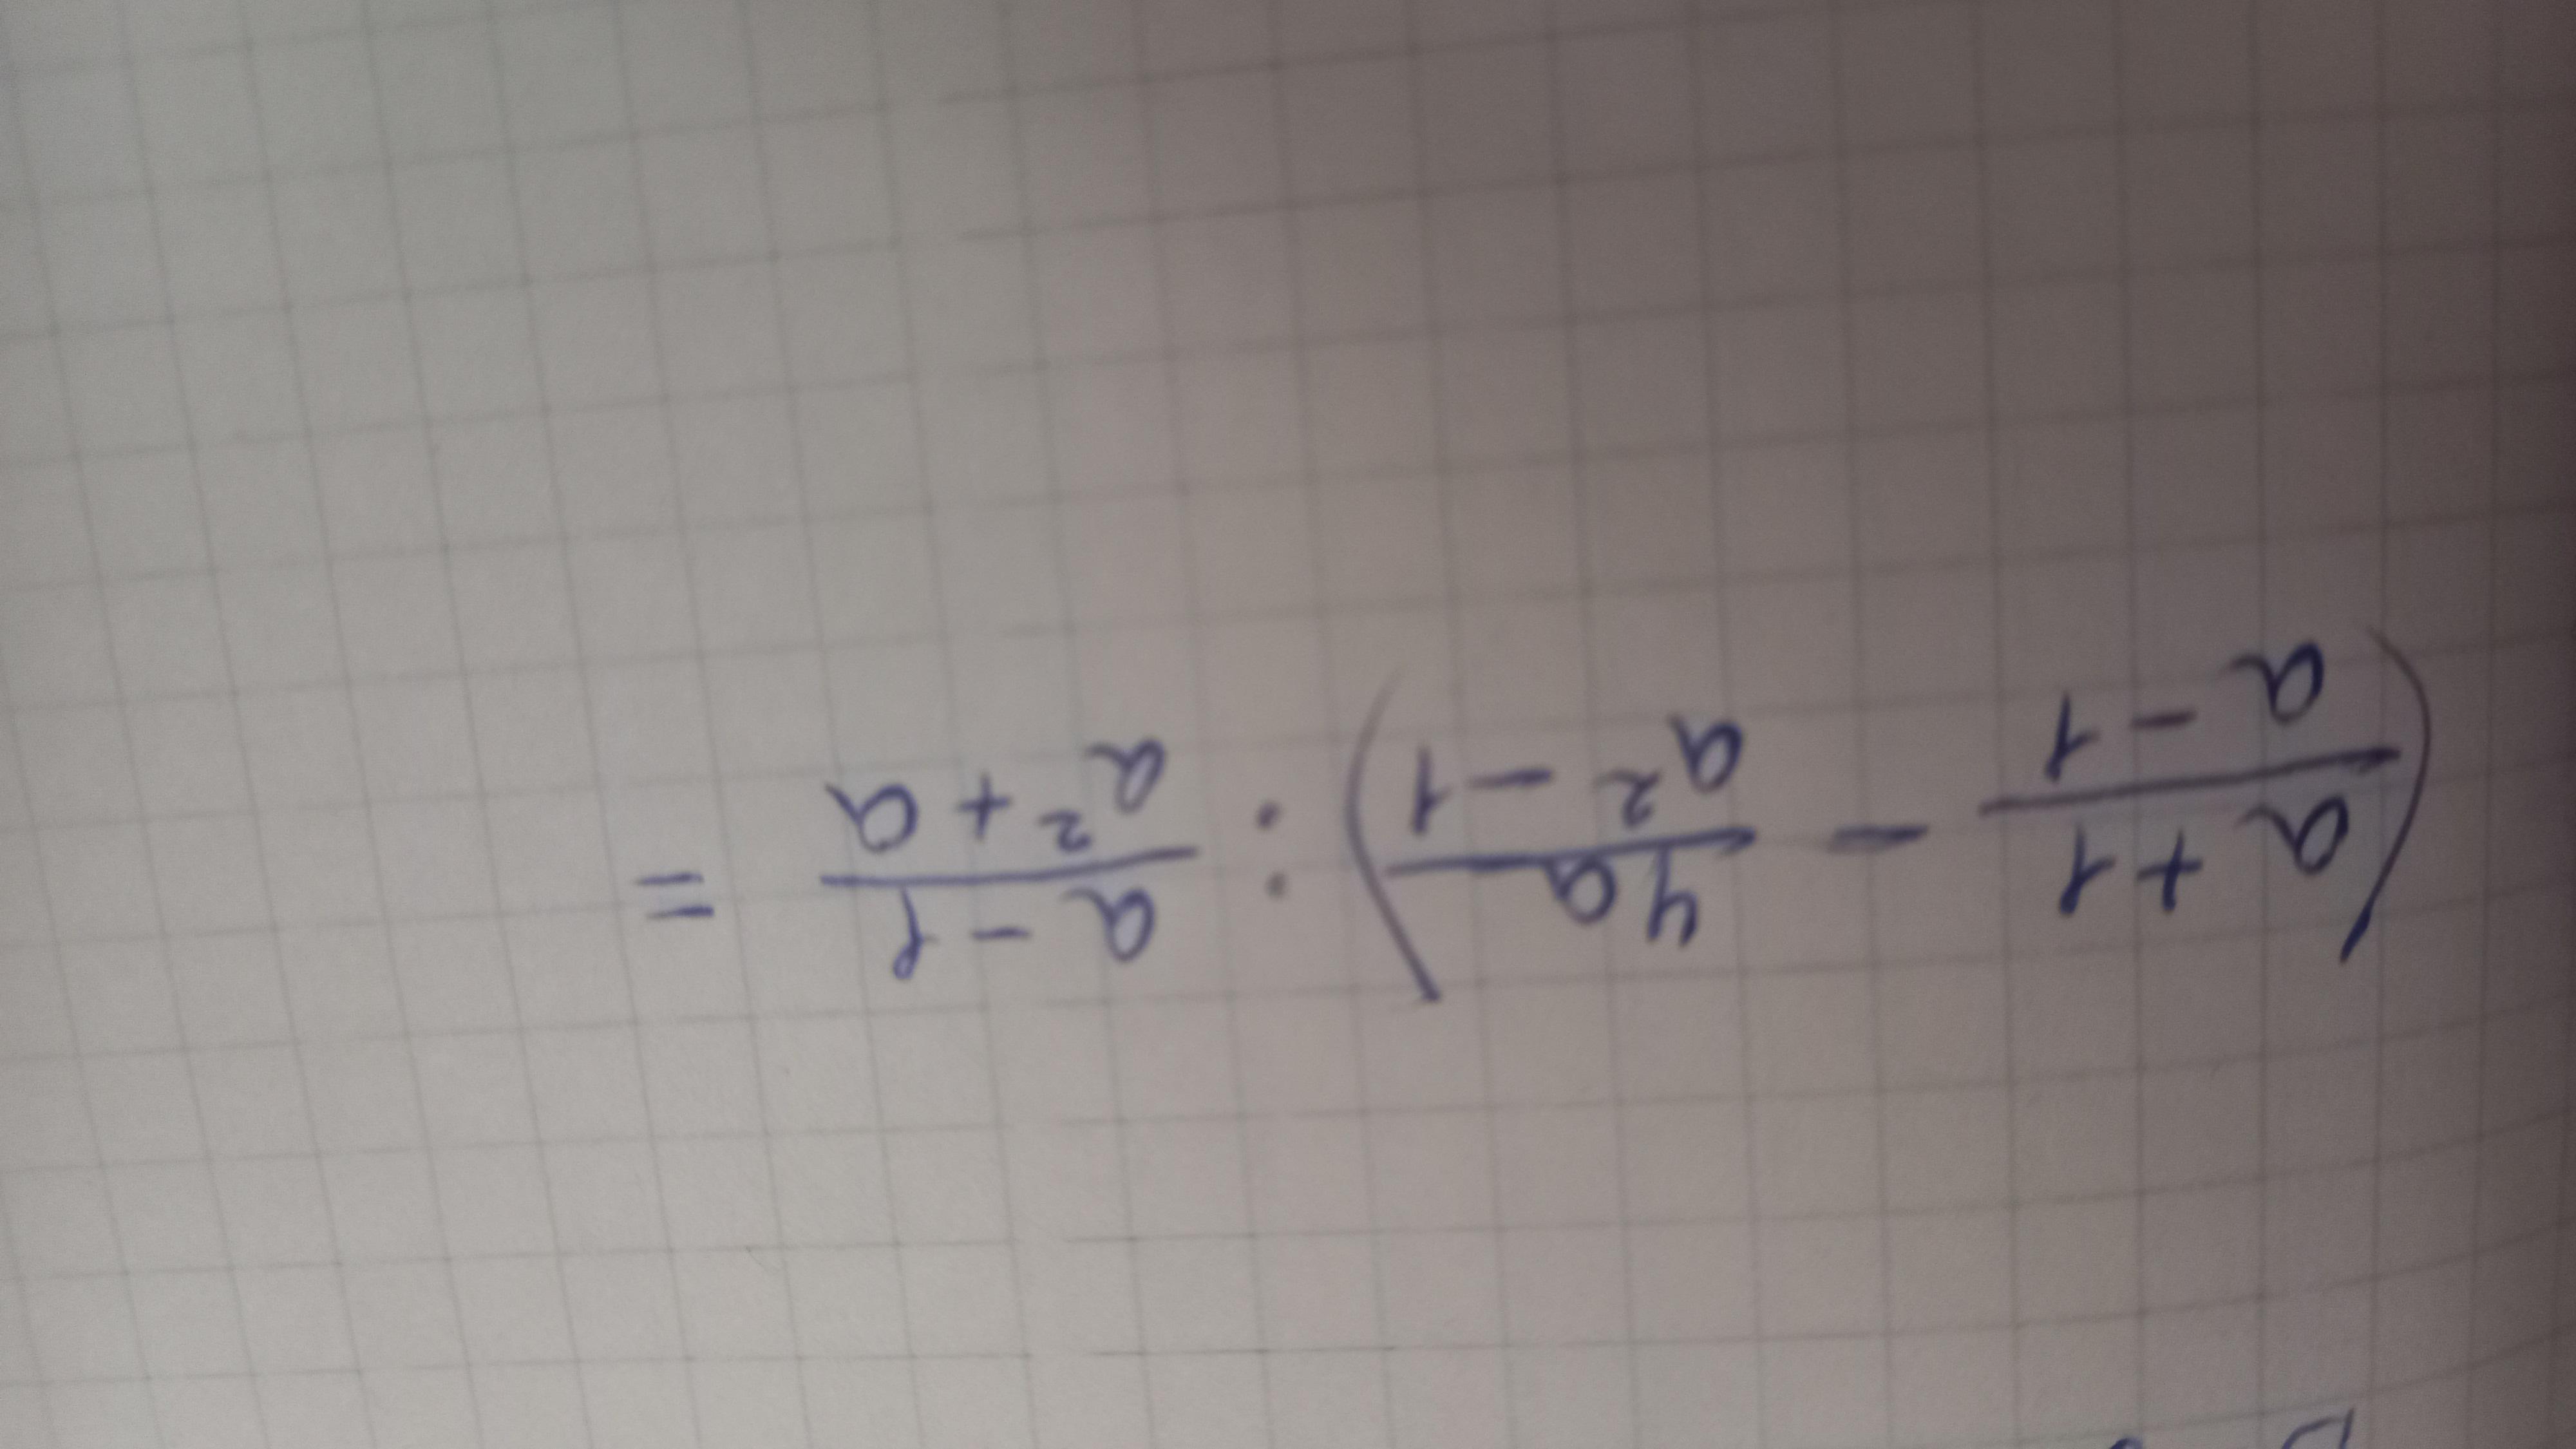 (\frac{a+1}{a-1} - \frac{4a}{a^2-1}) : \frac{a-1}{a^2+a} =